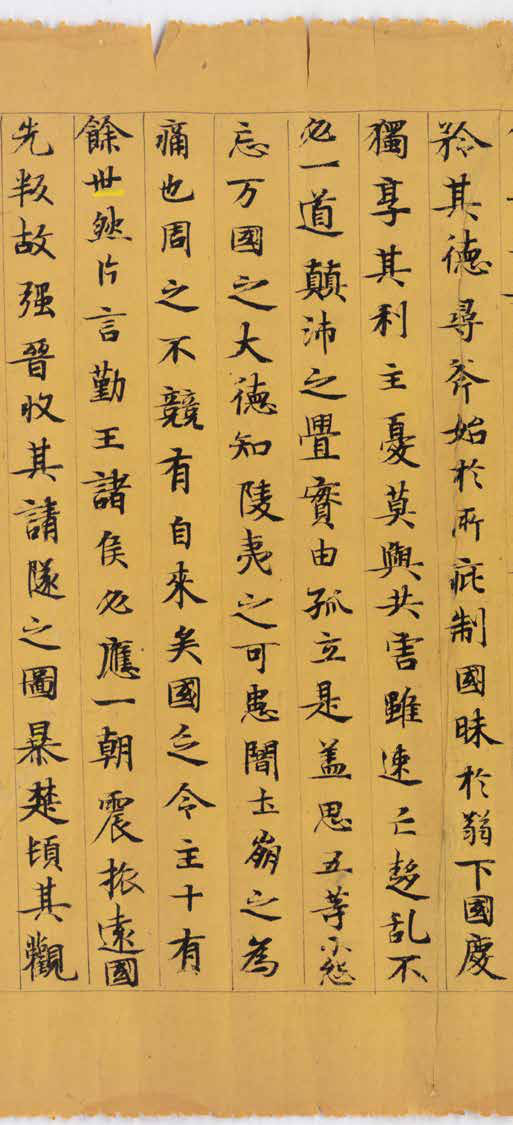 矜其德尋斧始於所庇制國昧於弱下國慶
獨享其利主憂莫與共害雖速亡趍乱不
必一道顛沛之舋實由孤立是盖思五等小怨
忘万國之大德知陵夷之可患闇土崩之為
痛也周之不競有自來矣國乏令主十有
餘世然片言勤王諸侯必應一朝震振遠國
先叛故强晉收其請隧之圖暴楚頓其觀